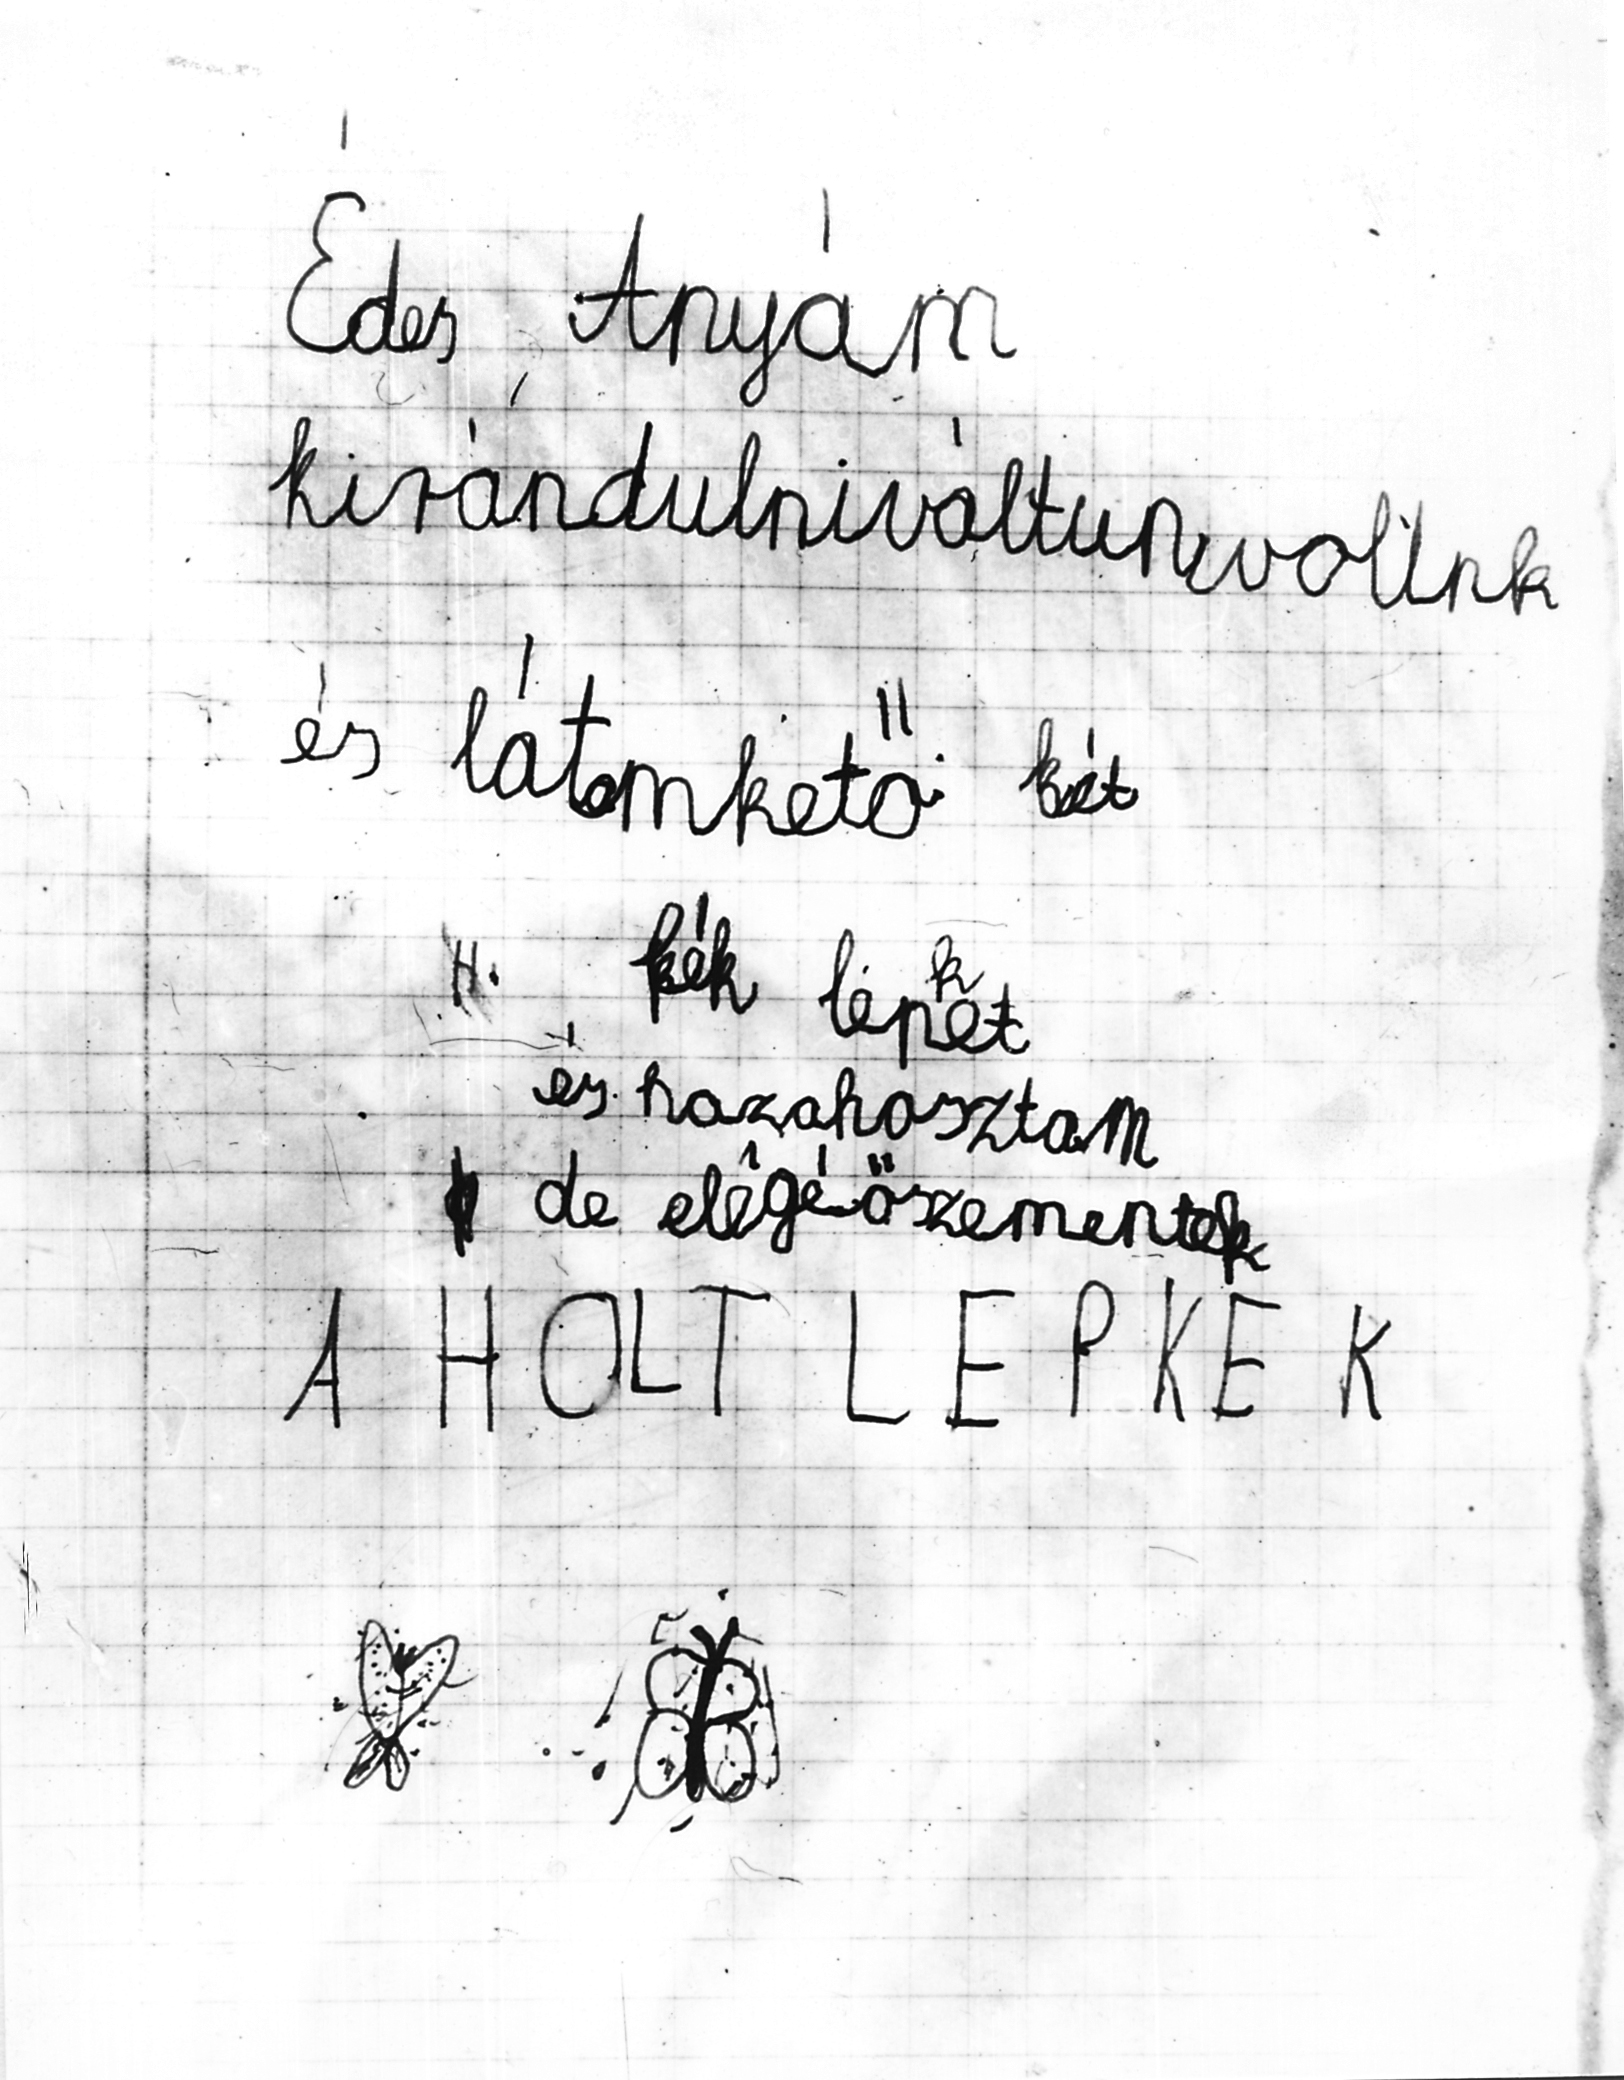 Édes Anyám
kirándulniváltunvoltnk
és látomkető két
H. kék lepket
és hazahosztam
de elégé öszementek
A HOLT LEPKÉK